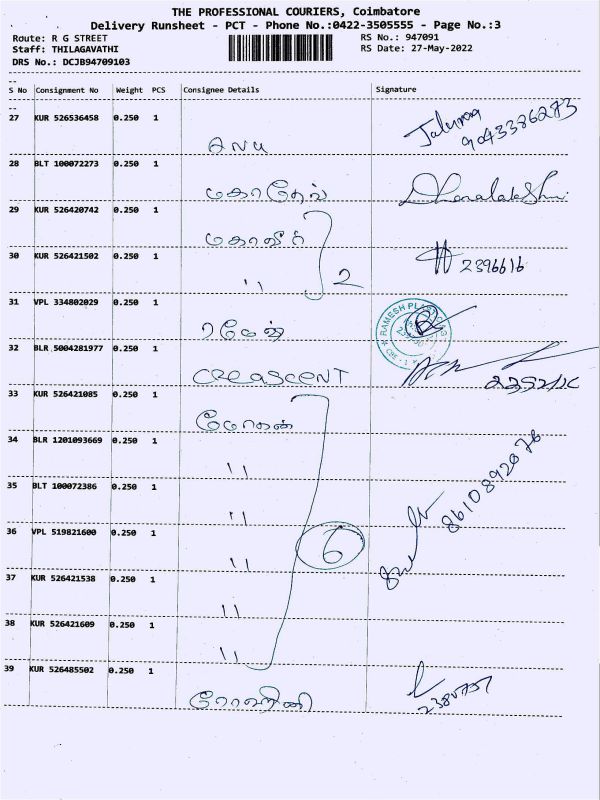 THE PROFESSIONAL COURIERS, Coimbatore
Delivery Runsheet - PCT - Phone No.:0422-3505555 - Page No.:3
Route: R G STREET
RS No.: 947091
Staff: THILAGAVATHI
RS Date: 27-May-2022
DRS No.: DCJB94709103
S No Consignment No Weight PCS Consignee Details Signature
27 KUR 526536458 0.250 1 ANU 9043386273
28 BLT 100072273 0.250 1 மகாதேவ் Dhanalakshmi
29 KUR 526420742 0.250 1
30 KUR 526421502 0.250 1 " 2 2396616
31 VPL 334802029 0.250 1 ரமேஷ் RAMESH
32 BLR 5004281977 0.250 1 CREASCENT
33 KUR 526421085 0.250 1 மோகன்
34 BLR 1201093669 0.250 1 "
35 BLT 100072386 0.250 1 " 8610892076
36 VPL 519821600 0.250 1 " 6
37 KUR 526421538 0.250 1 "
38 KUR 526421609 0.250 1 "
39 KUR 526485502 0.250 1 ரோஹிணி